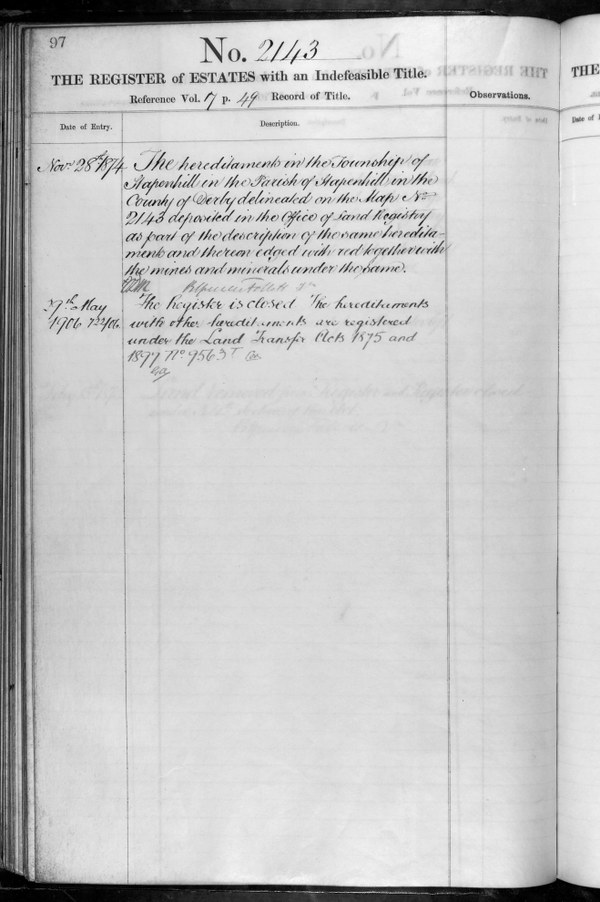 97
No. 2143
THE REGISTER of ESTATES with an Indefeasible Title.
Reference Vol. 7 p. 49 Record of Title.
Observations.
Date of Entry.
Description.
Novr. 28th 1874
The hereditaments in the Township of
Stapenhill in the Parish of Stapenhill in the
County of Derby delineated on the Map No
2143 deposited in the Office of Land Registry
as part of the description of the same heredita-
ments and thereon edged with red together with
the mines and minerals under the same.
Follett
7th May
1906
The Register is closed The hereditaments
with other hereditaments are registered
under the Land Transfer Acts 1875 and
1897 No 9563
THE
Date of